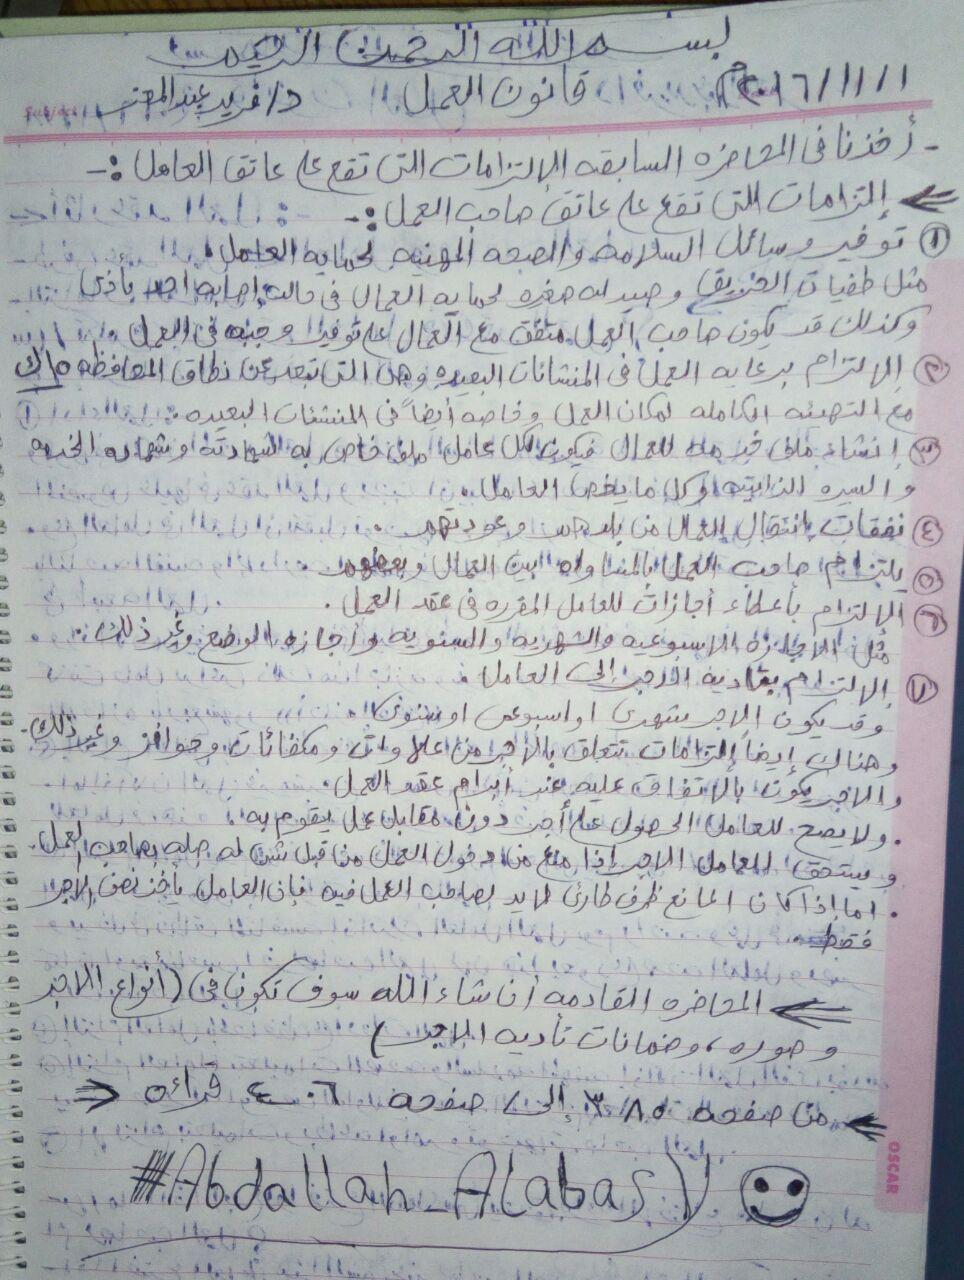 بسم الله الرحمن الرحيم
٢٠١٦/١١/١م قانون العمل د/فريد عبد المعز
- أخذنا فى المحاضره السابقه الإلتزامات التى تقع على عاتق العامل :-
إلتزامات التى تقع على عاتق صاحب العمل :-
① توفير وسائل السلامه والصحه المهنيه لحمايه العامل
مثل طفيات الحريق وصيدليه صغره لحمايه العمال فى حالت إصابه احد بأذى
وكذلك قد يكون صاحب العمل متفق مع العمال على توفير وجبه فى العمل
② إلالتزام برعايه العمل فى المنشاتات البعيده وهى التى تبعد عن نطاق المحافظه ١٥ ك
مع التهيئه الكامله لمكان العمل وخاصه أيضاً فى المنشئات البعيده .
③ إنشاء ملف خدمه للعمال فيكون لكل عامل ملف خاص به لشهادته وشهاده الخبره
والسيره الذاتيه وكل ما يخص العامل .
④ نفقات بانتقال العمال من بلدهم وعودتهم .
⑤ يلتزم صاحب العمل بالمساواه بين العمال وبعضهم
⑥ ألإلتزام بأعطاء أجازات للعامل المقرره فى عقد العمل .
مثل الاجازة الاسبوعيه والشهريه والسنويه وأجازه الوضع وغير ذلك .
⑦ إلالتزام بتاديه الاجر إلى العامل
وقد يكون الاجر شهرى او اسبوعى او سنوى
وهناك إيضاً إلتزامات تتعلق بالاجر من علاوات ومكفائات وحوافز وغير ذلك .
والاجر يكون بالاتفاق عليه عند أبرام عقد العمل .
. ولا يصح للعامل الحصول على أجر دون مقابل عمل يقوم به .
ويستحق للعامل الاجر إذا منع من دخول العمل من قبل شئ له صله بصاحب العمل .
. اما إذا كان المانع ظرف طارئ لا يد لصاحب العمل فيه فإن العامل يأخذ نصف الاجر
فقط
المحاضره القادمه أن شاء الله سوف تكون فى (أنواع الاجر
وصوره ، وضمانات تأديه الاجر)
من صفحه ٣٨٥ إلى صفحه ٤٠٦ قراءه
#Abdallah_Alabasy
OSCAR